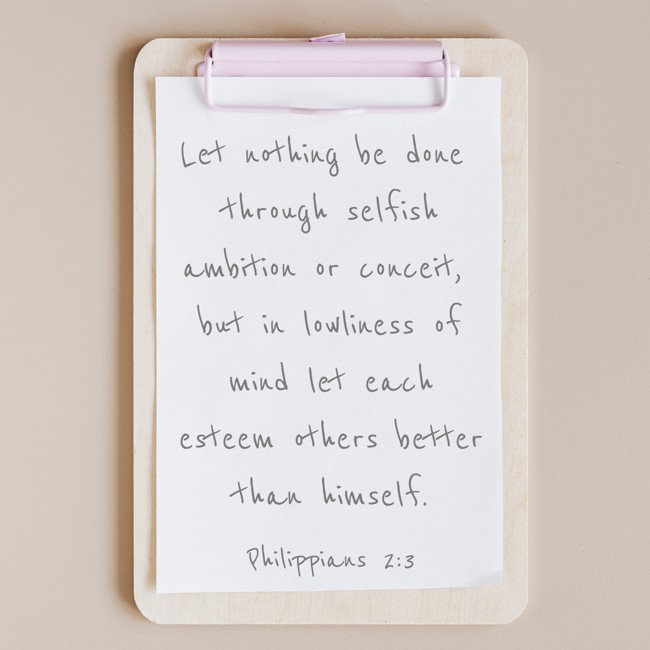 Let nothing be done
through selfish
ambition or conceit,
but in lowliness of
mind let each
esteem others better
than himself.
Philippians 2:3